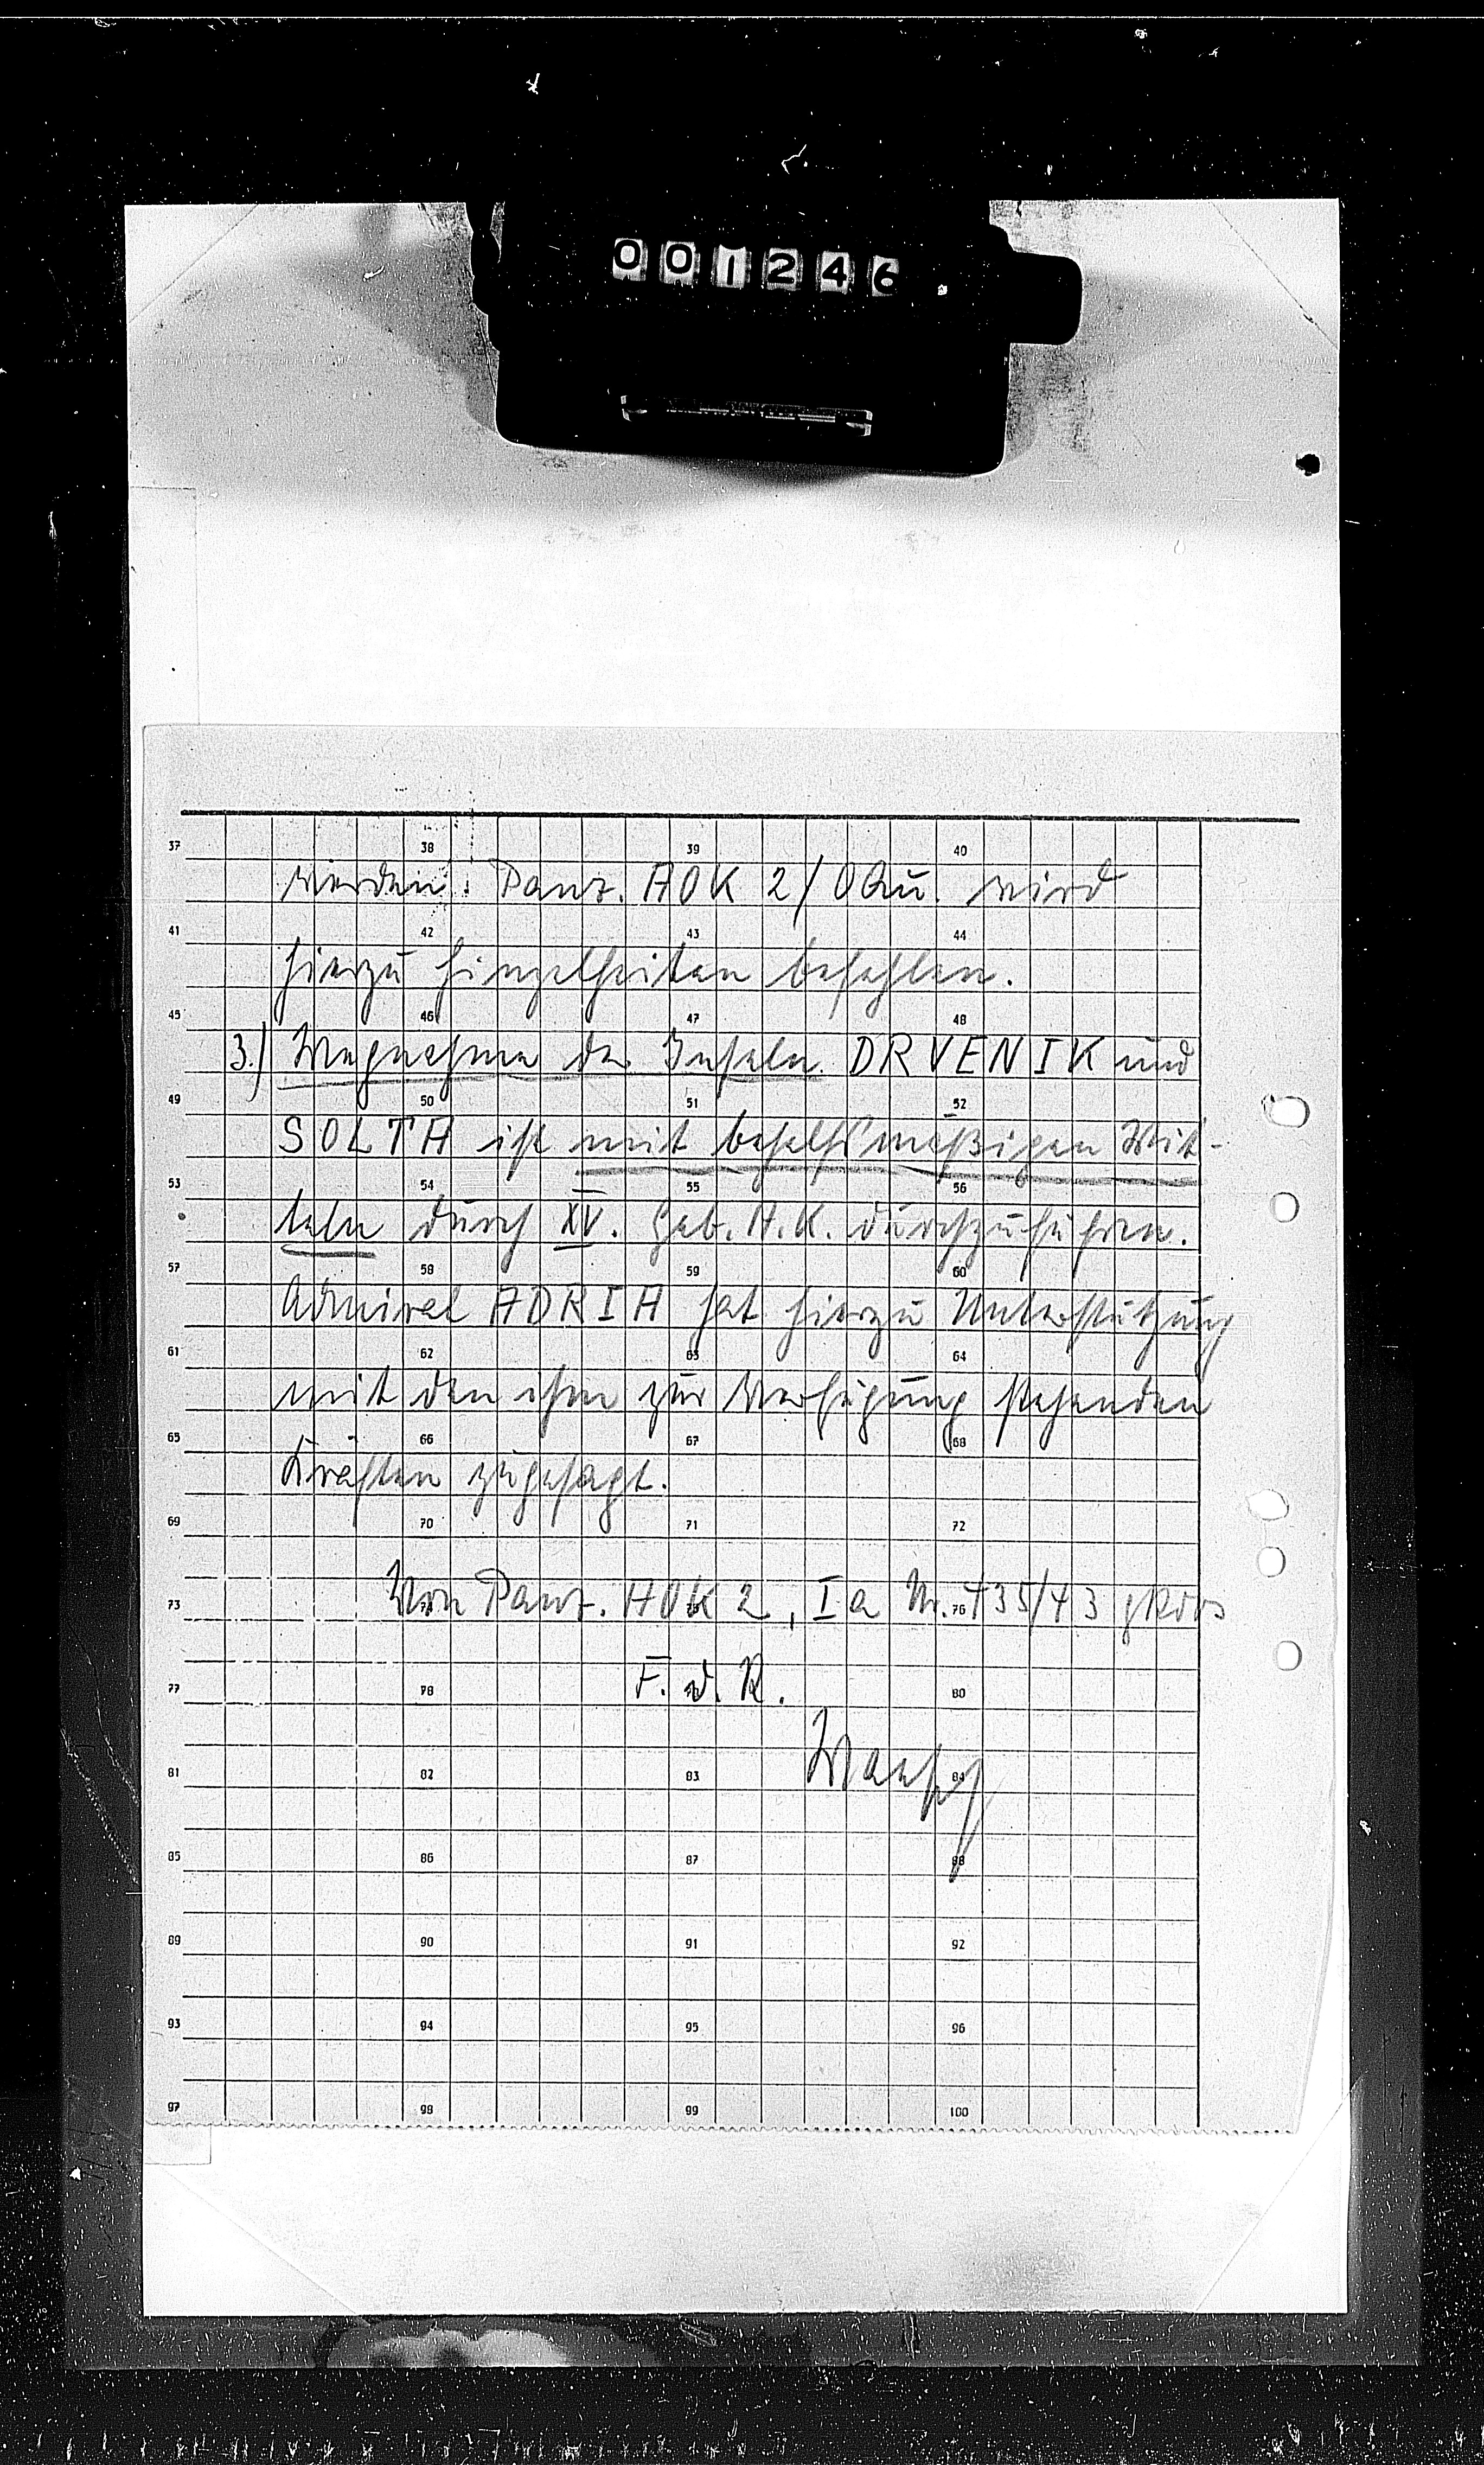 001246
37 38 39 40
werden. Panz. AOK 2/OQu. wird
41 42 43 44
hierzu Einzelheiten befehlen.
45 46 47 48
3.) Wegnahme der Inseln DRVENIK und
49 50 51 52
SOLTA ist mit behelfsmäßigen Mit-
53 54 55 56
teln durch XV. Geb. A.K. durchzuführen.
57 58 59 60
Admiral ADRIA hat hierzu Unterstützung
61 62 63 64
mit den ihm zur Verfügung stehenden
65 66 67 68
Kräften zugesagt.
69 70 71 72
Von Panz. AOK 2, Ia Nr. 435/43 gKdos
73 76
F. d. R.
77 78 80
81 82 83 84
85 86 87 88
89 90 91 92
93 94 95 96
97 98 99 100